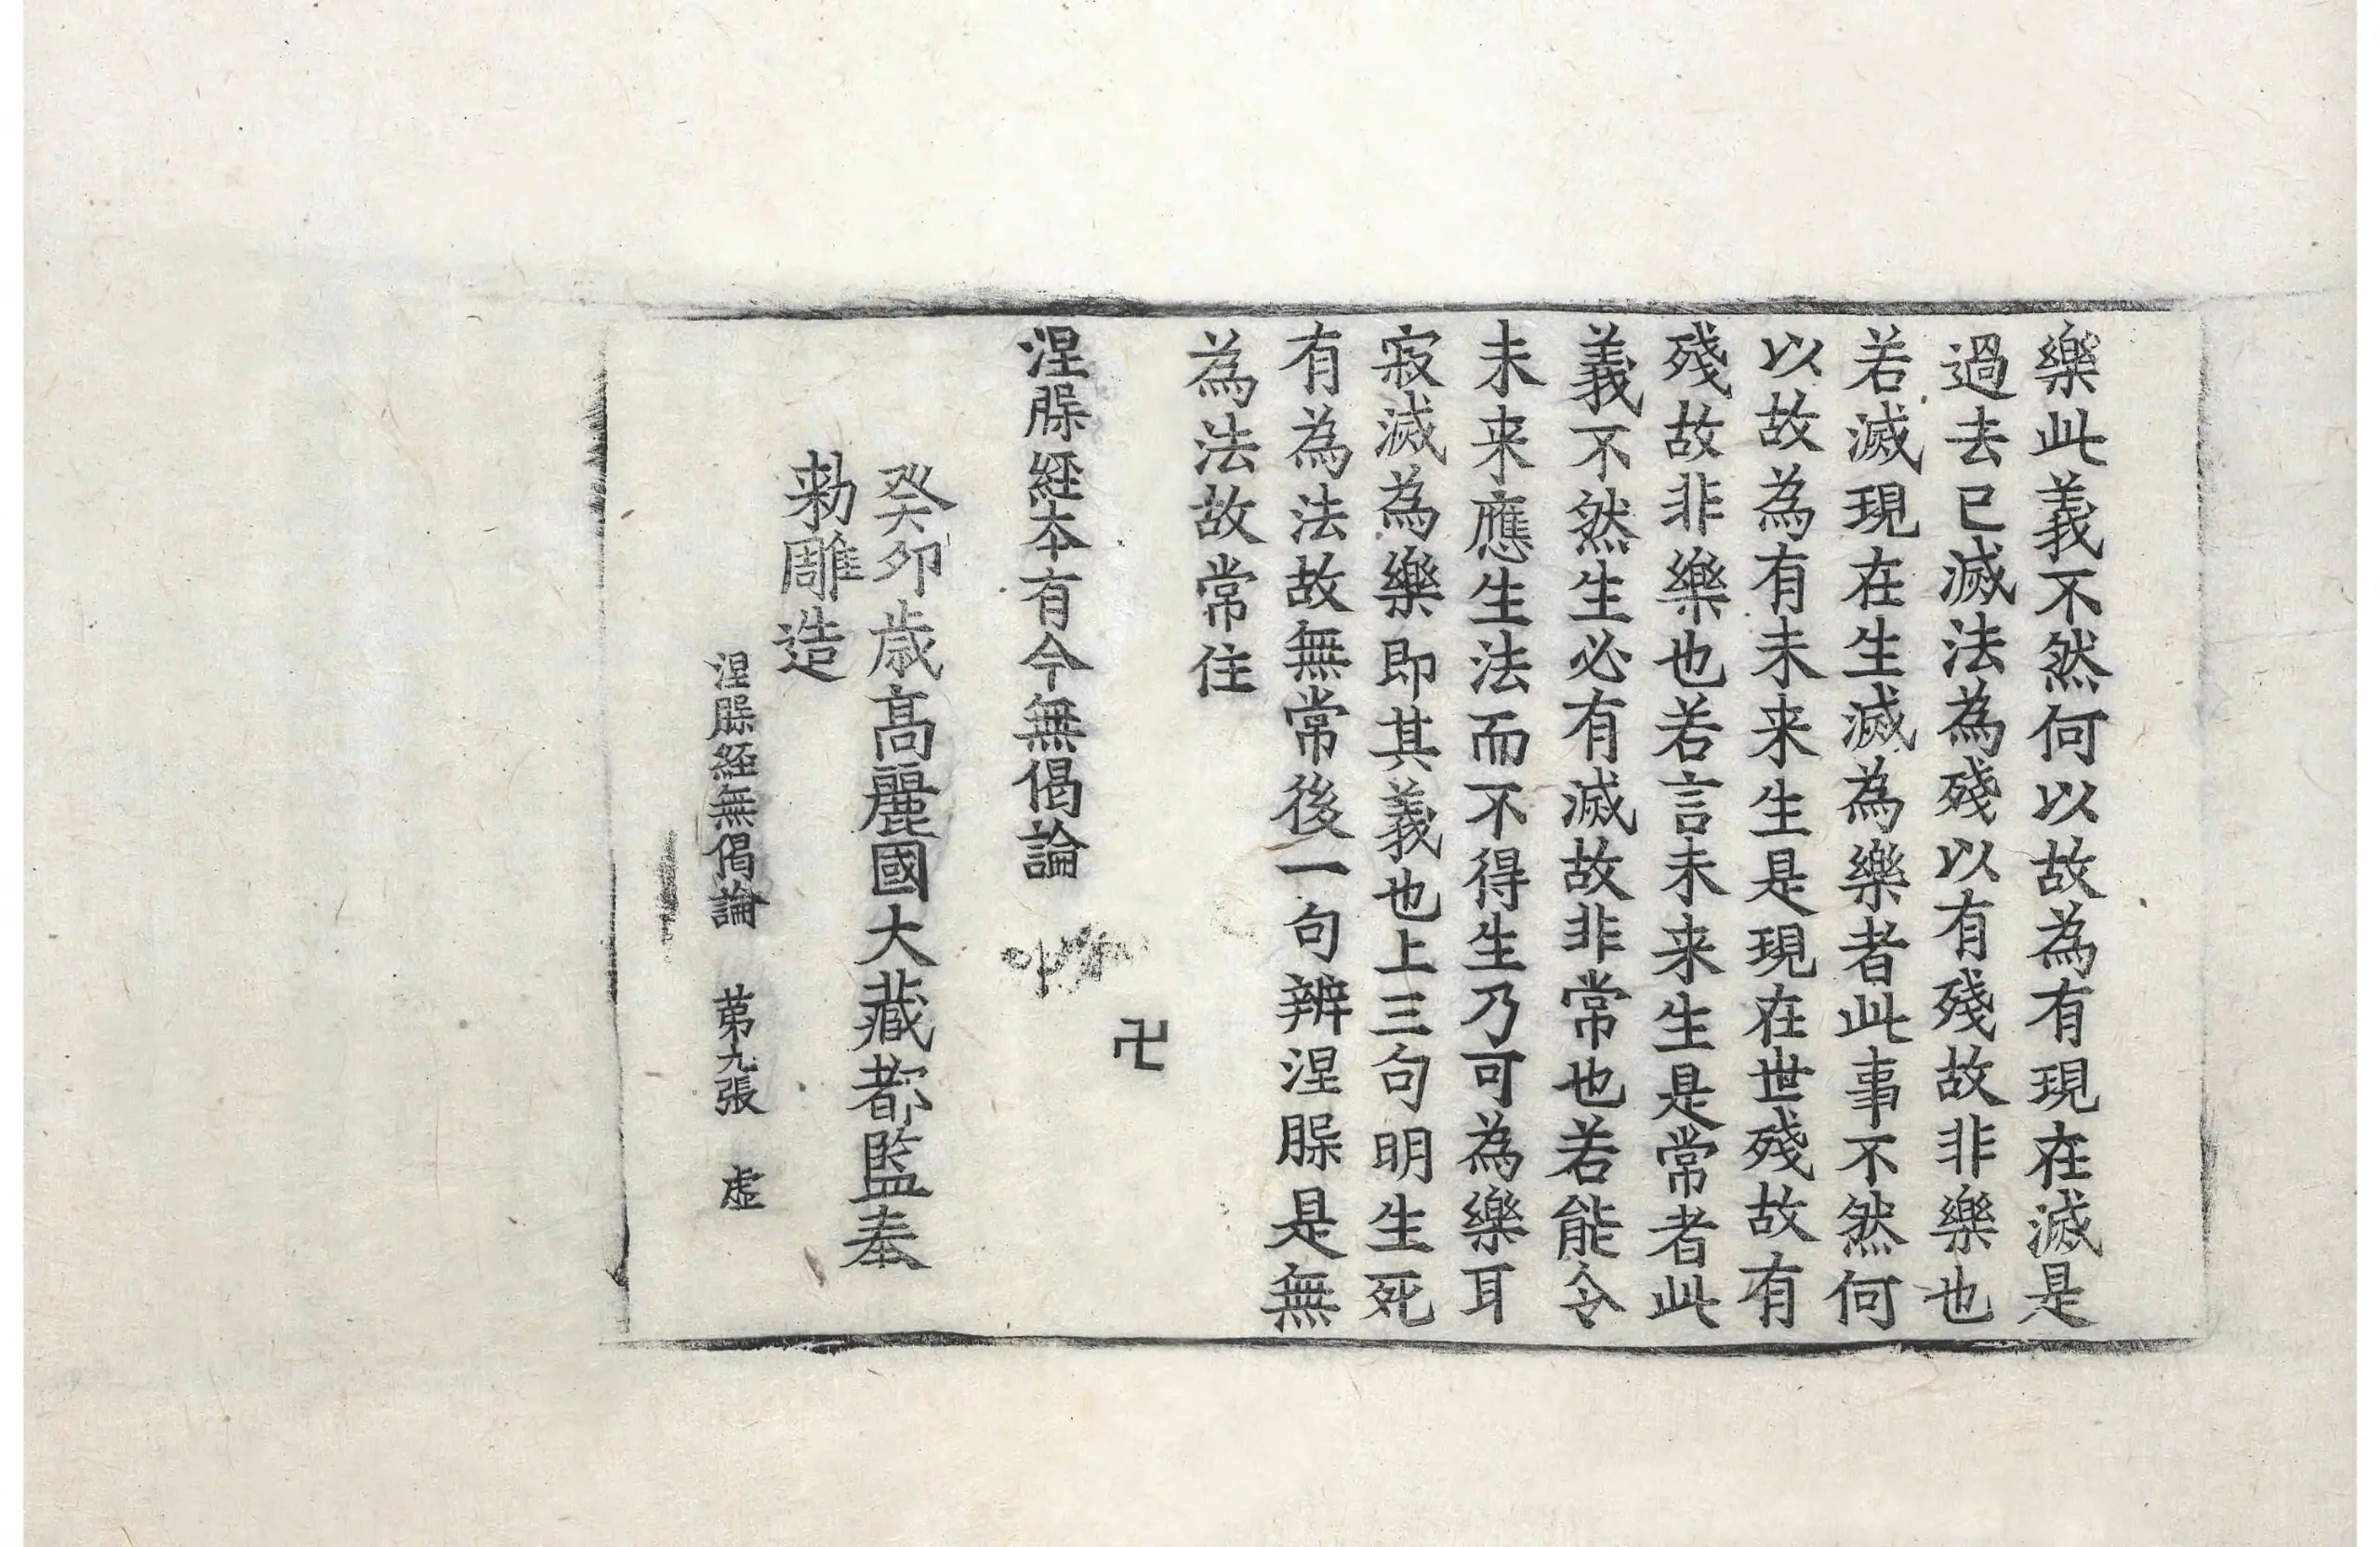 樂此義不然何以故為有現在滅是
過去已滅法為殘以有殘故非樂也
若滅現在生滅為樂者此事不然何
以故為有未来生是現在世殘故有
殘故非樂也若言未来生是常者此
義不然生必有滅故非常也若能令
未来應生法而不得生乃可為樂耳
寂滅為樂即其義也上三句明生死
有為法故無常後一句辨涅䐉是無
為法故常住
卍
涅䐉經本有今無偈論
癸卯歳髙麗國大藏都監奉
勑雕造
涅䐉經無偈論 苐九張 虛